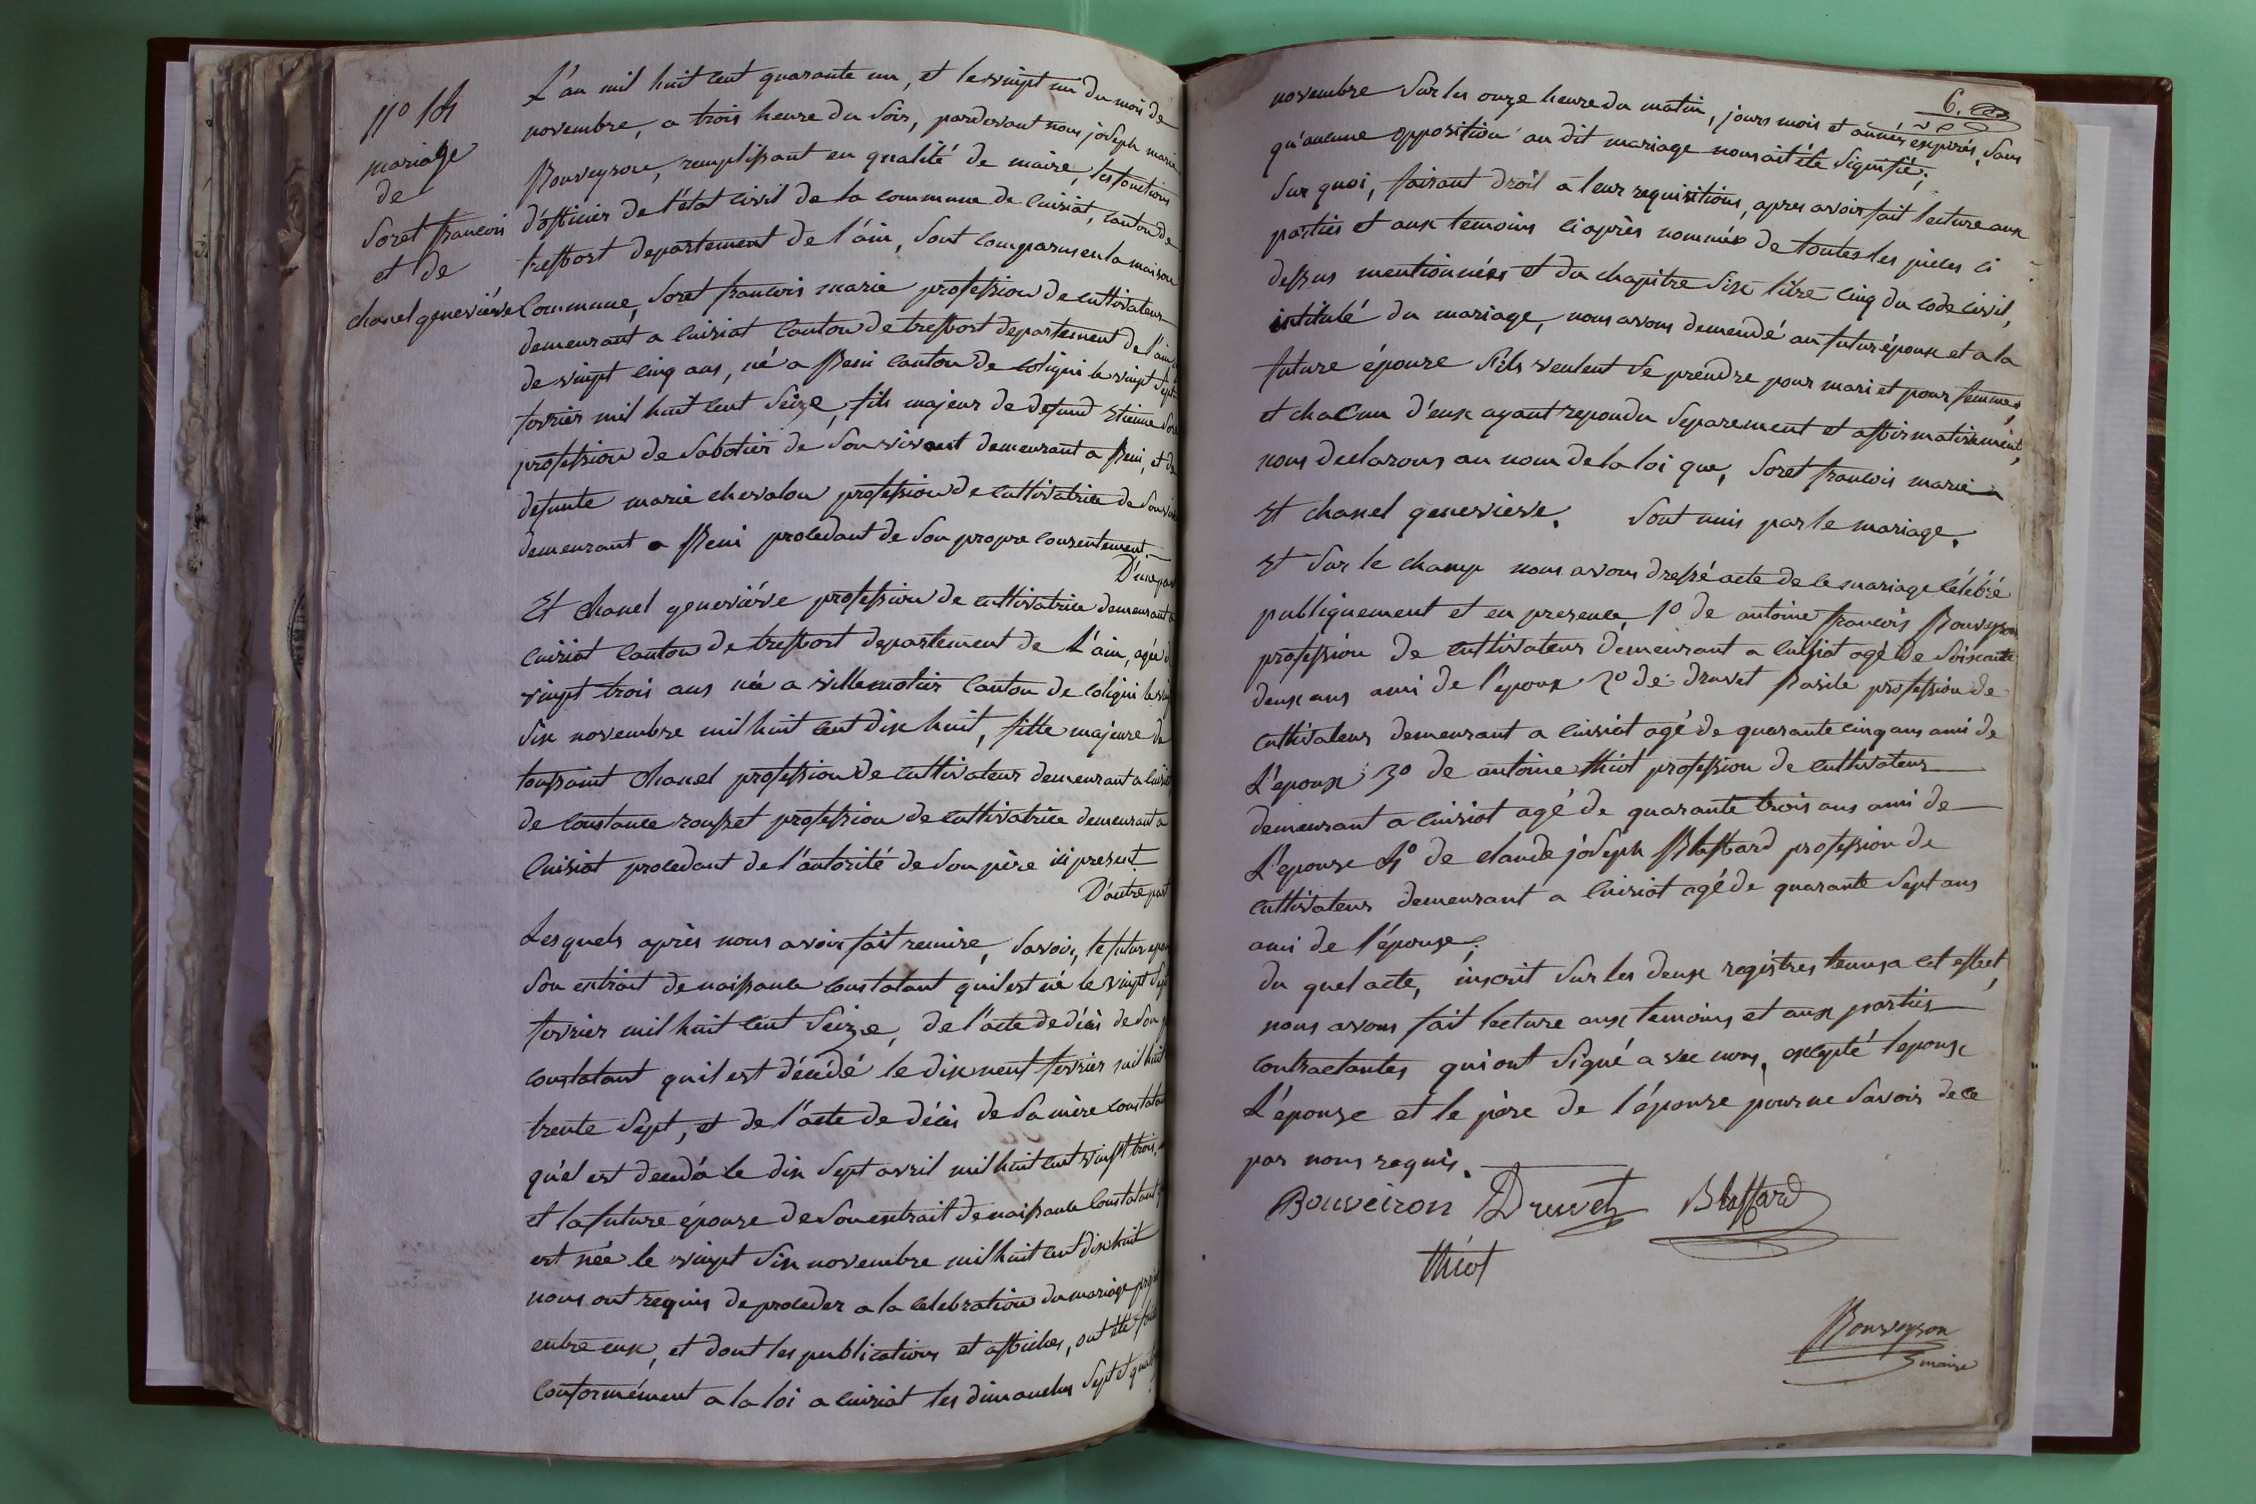 n° 14
mariage
de
Soret francois
et de
chanel geneviéve
L'an mil huit cent quarante un, et le vingt un du mois de
novembre, a trois heure du soir, pardevant nous joseph marie
Bouveyron, remplissant en qualité de maire, les fonctions
d'officier de l'état civil de la commune de Cuisiat, canton de
treffort departement de l'ain, sont comparus en la maison
Commune, Soret francois marie profession de cultivateur
demeurant a Cuisiat Canton de treffort departement de l'ain
de vingt cinq ans, né a Beni canton de coligni le vingt sept
fevrier mil huit cent seize, fils majeur de defund Etienne Soret
profession de Sabotier de son vivant demeurant a Beni, et de
defunte marie chevalon profession de cultivatrice de son viv
demeurant a Beni procedant de son propre consentement
D'une part
Et Chanel geneviéve profession de cultivatrice demeurant a
Cuisiat Canton de treffort departement de L'ain, agée d
vingt trois ans née a villemotier Canton de coligni le ving
six novembre mil huit cent dix huit, fille majeure de
toussaint Chanel profession de cultivateur demeurant a Cuisiat
de Constance rousset profession de cultivatrice demeurant a
Cuisiat procedant de l'autorité de son père ici present
D'autre part
Lesquels après nous avoir fait remise, savoir, le futur epou
son extrait de naissance constatant qu'il est né le vingt sept
fevrier mil huit cent seize, de l'acte de décès de son p
constatant qu'il est décédé le dix neuf fevrier mil huit
trente sept, et de l'acte de décès de sa mère constatan
qu'el est decedá le dix sept avril mil huit cent vingt trois,
et la future épouse de son extrait de naissance Constatant
est née le vingt six novembre mil huit cent dix huit
nous ont requis de proceder a la celebration du mariage proj
entre eux, et dont les publications et affiches, ont été fait
conformément a la loi a Cuisiat les dimanches sept et quat
6.
novembre sur les onze heure du matin, jours mois et année expirés, sans
qu'aucune opposition au dit mariage nous ait été signifié;
sur quoi, faisant droit a leur requisitions, apres avoir fait lecture aux
parties et aux temoins ci après nommés de toutes les pieces ci
dessus mentionnées et du chapitre six titre cinq du code civil,
intitulé du mariage, nous avons demendé au futur époux et a la
future épouze s'ils veulent se prendre pour mari et pour femme,
et chacun d'eux ayant repondu separement et affirmativement,
nous declarons au nom de la loi que, Soret francois marie
Et chanel geneviève. Sont unis par le mariage.
Et sur le champ nous avons dressé acte de ce mariage célébré
publiquement et en presence, 1° de antoine francois Bouveyron
profession de cultivateur demeurant a Cuisiat agé de soixante
deux ans ami de l'epoux 2° de druvet Basile profession de
cultivateur demeurant a Cuisiat agé de quarante cinq ans ami de
L'epoux; 3° de antoine thiot profession de cultivateur
demeurant a Cuisiat agé de quarante trois ans ami de
L'epouse 4° de claude joseph Blaffard profession de
cultivateur demeurant a Cuisiat agé de quarante sept ans
ami de l'épouse;
du quel acte, inscrit sur les deux registres tenus a cet effet,
nous avons fait lecture aux temoins et aux parties
contractantes qui ont signé avec nous, excepté l'epoux
L'épouse et le père de l'épouse pour ne savoir de ce
par nous requis.
Bouveiron Druvet Blaffard
thiot
Bouveyron
maire